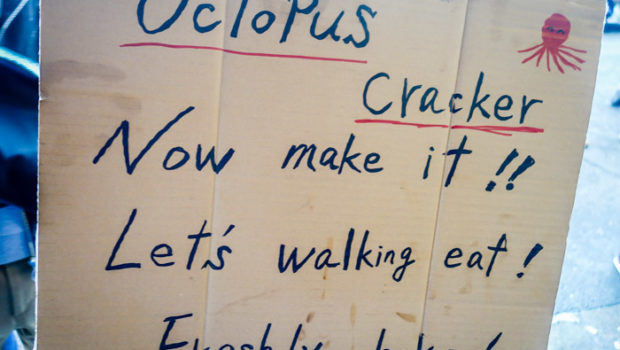 Octopus
Cracker
Now make it!!
Let's walking eat!